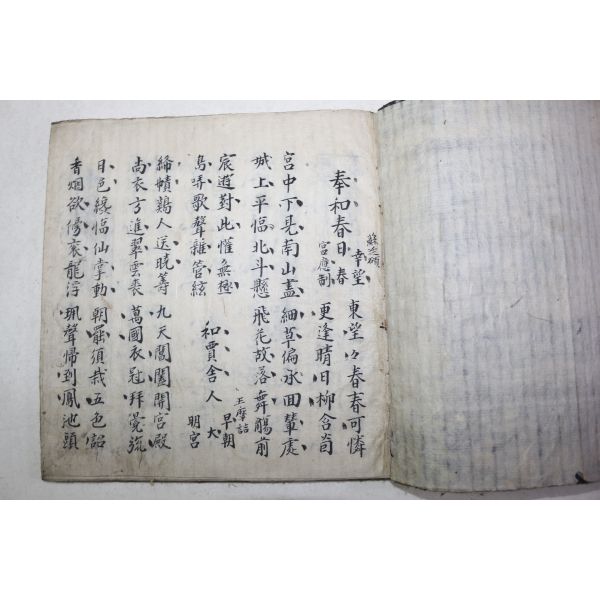 奉和春日幸望春宮應制
蘇廷碩
東望々春春可憐
更逢晴日柳含烟
宮中下見南山盡 細草偏承回輦處
城上平臨北斗懸 飛花故落舞觴前
宸遊對此惟無極
鳥哢歌聲雜管絃
和賈舍人早朝大明宮
王摩詰
絳幘鷄人送曉籌 九天閶闔開宮殿
尚衣方進翠雲裘 萬國衣冠拜冕旒
日色纔臨仙掌動 朝罷須裁五色詔
香烟欲傍袞龍浮 珮聲歸到鳳池頭